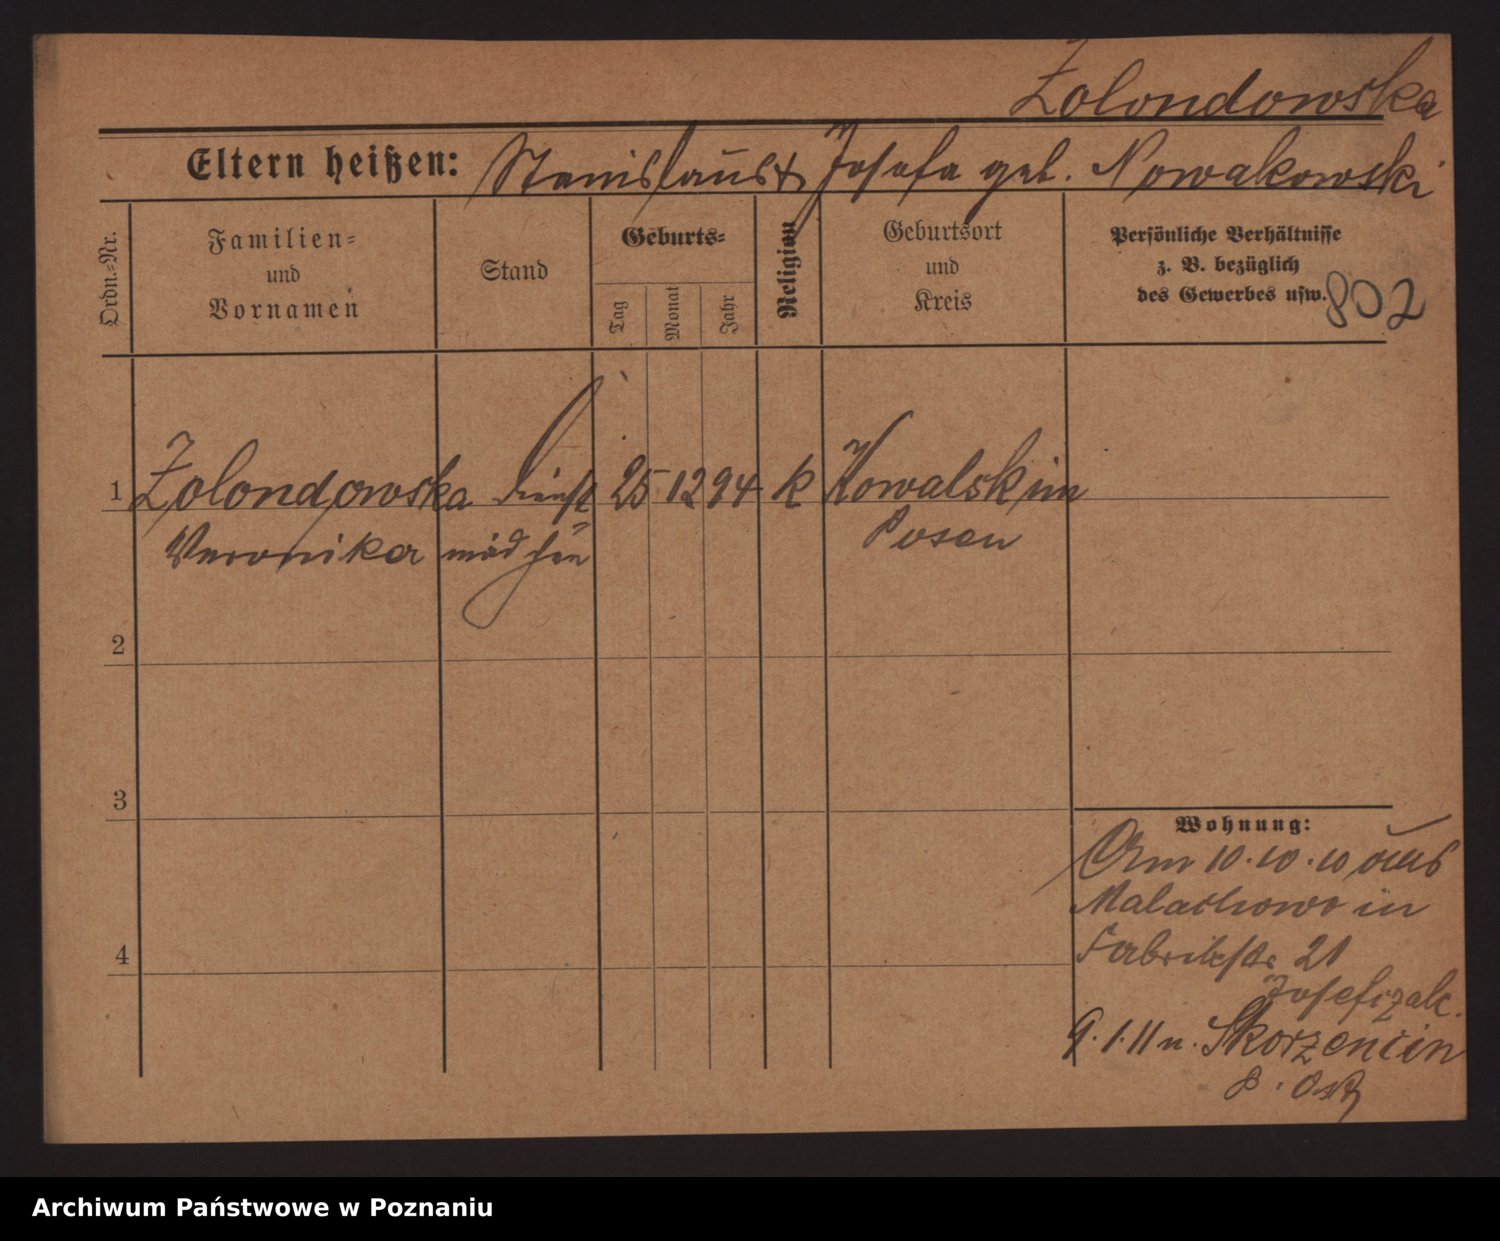 Zolondowska
Eltern heißen: Stanislaus & Josefa geb. Nowakowski
Ordn.-Nr.
Familien-
und
Vornamen
Stand
Geburts-
Tag
Monat
Jahr
Religion
Geburtsort
und
Kreis
Persönliche Verhältnisse
z. B. bezüglich
des Gewerbes usw.
802
1 Zolondowska Dienst 25 12 94 k Kowalskim
Veronika mädchen Posen
2
3
4
Wohnung:
Am 10.10.10 aus
Malachowo in
Fabrikstr 21
Josefizak.
9.1.11 n. Skorzencin